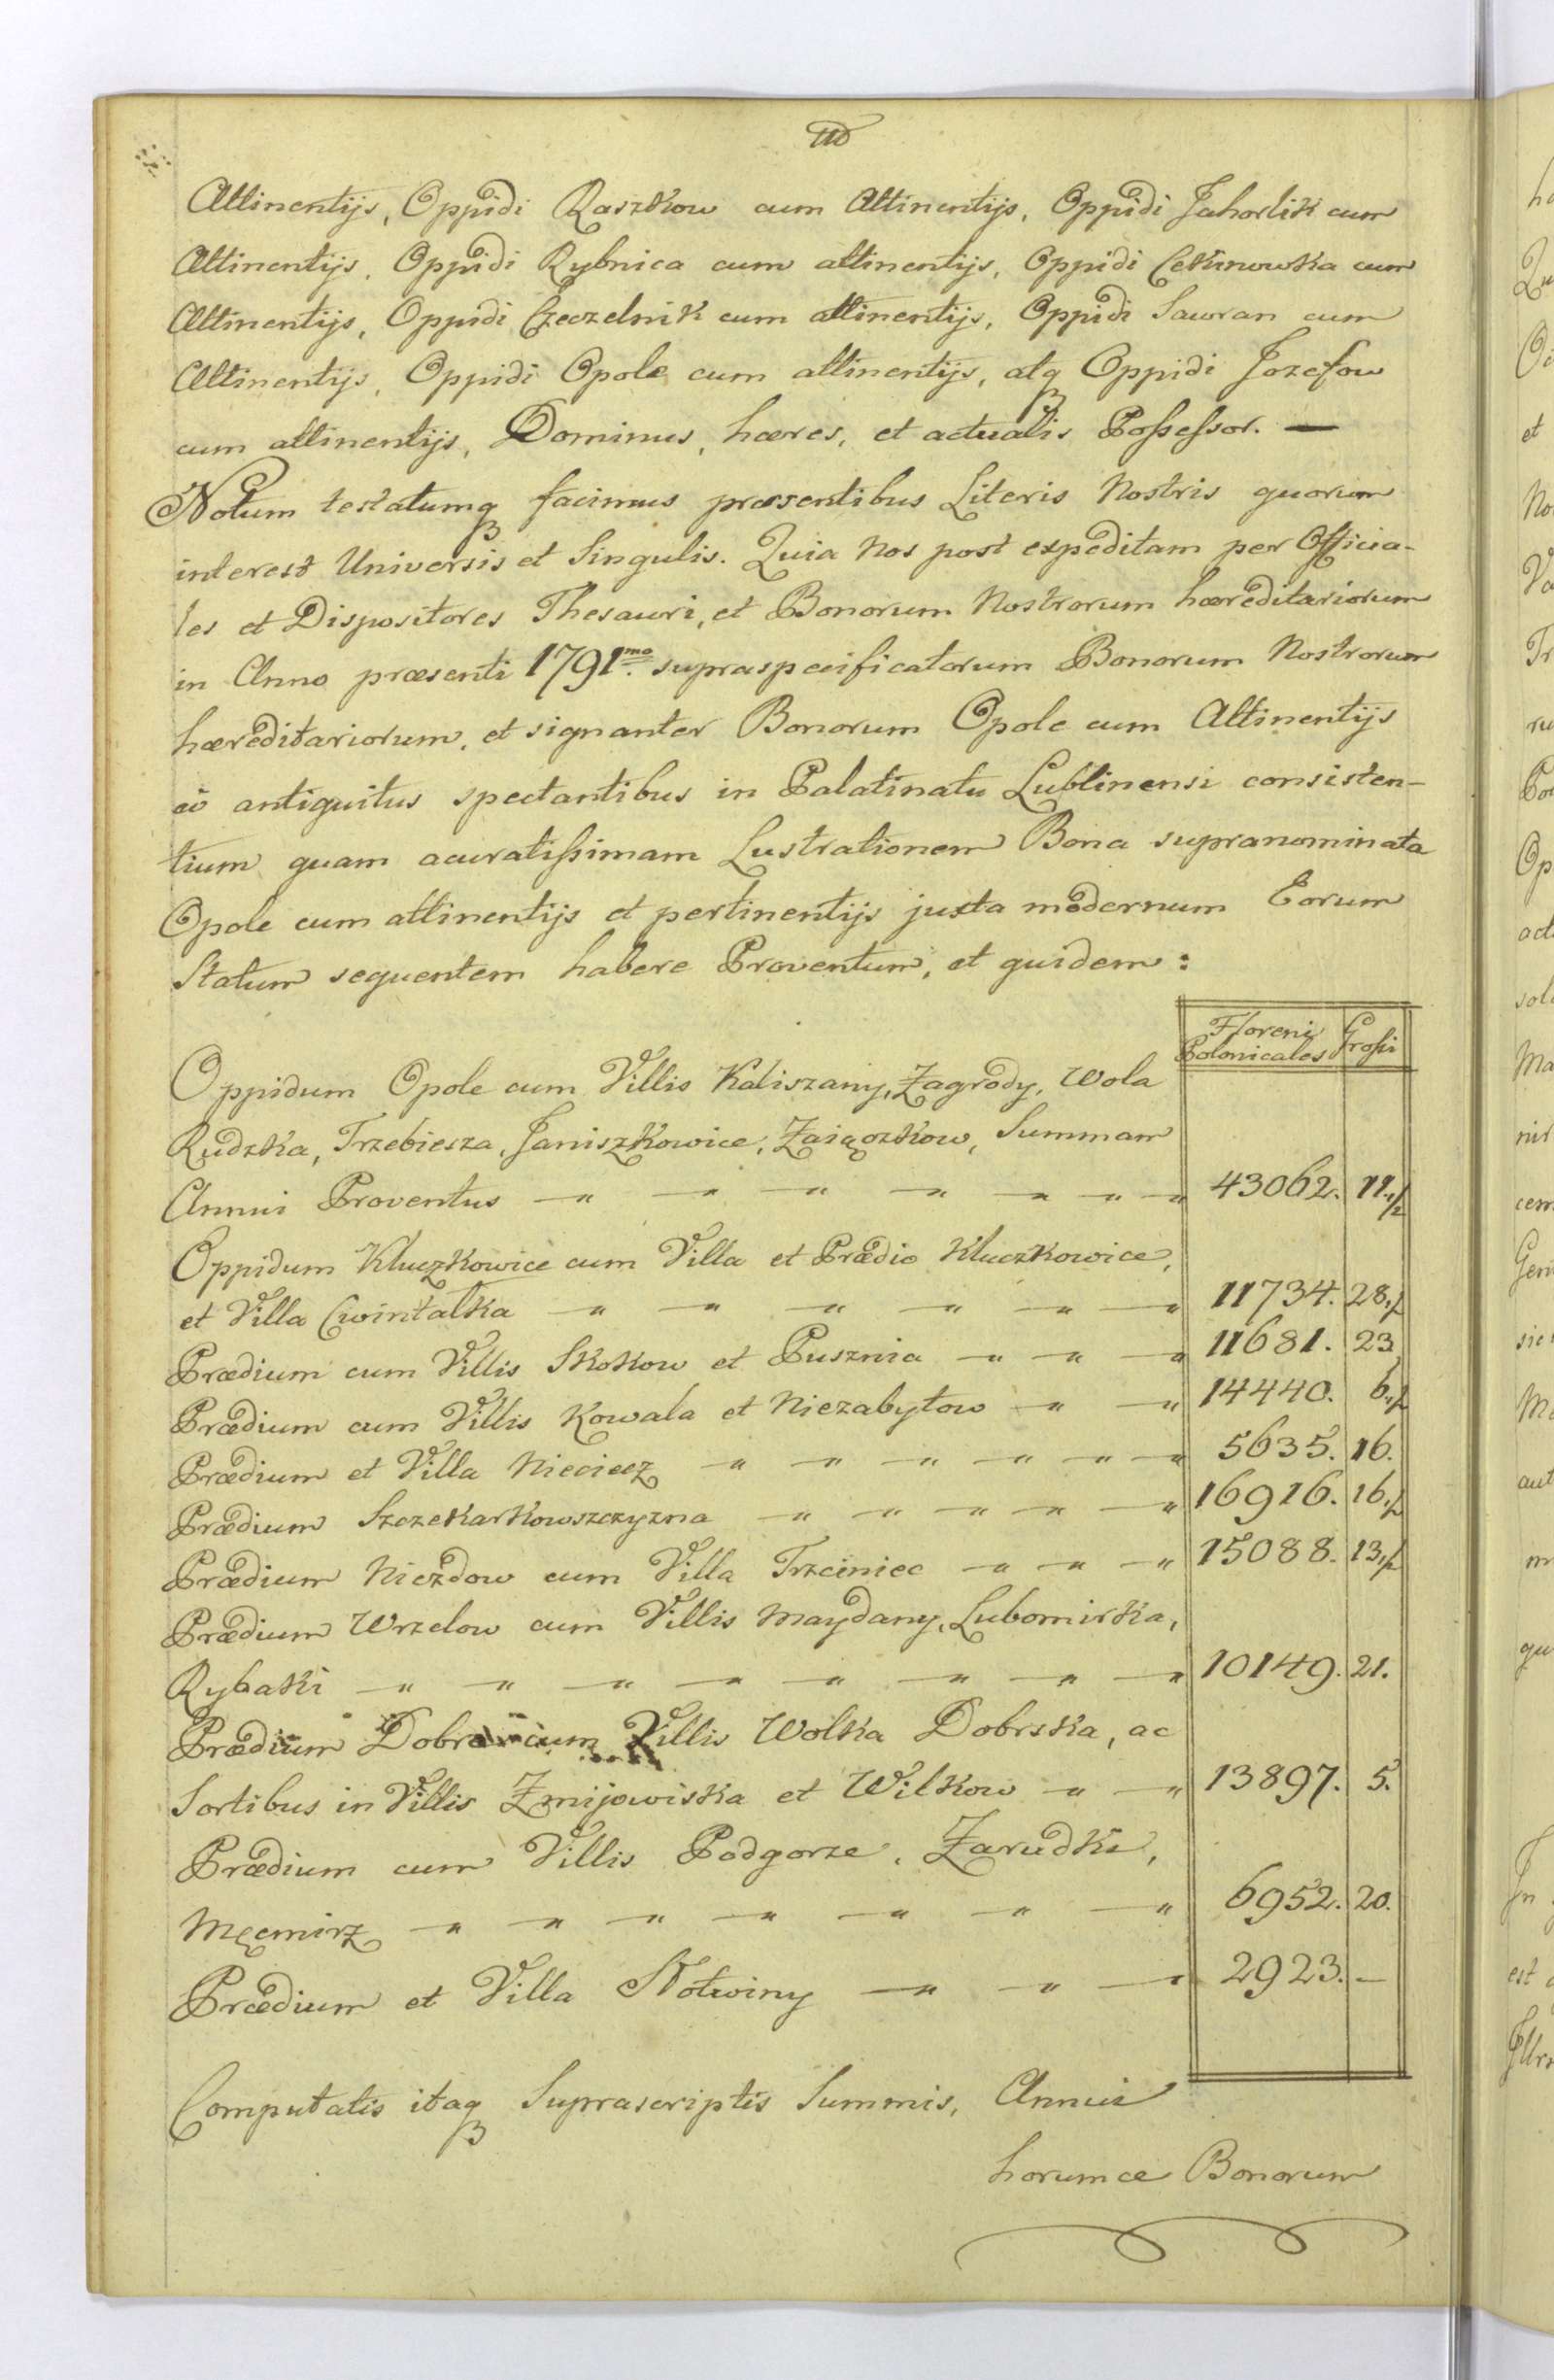 Attinentijs, Oppidi Raszkow cum Attinentijs, Oppidi Jahorlik cum
Attinentijs, Oppidi Rybnica cum attinentijs, Oppidi Cekinowka cum
Attinentijs, Oppidi Czeczelnik cum attinentijs, Oppidi Sawran cum
Attinentijs, Oppidi Opole cum attinentijs, atq Oppidi Jozefow
cum attinentijs, Dominus, hæres, et actualis Possessor. —
Notum testatumq facimus præsentibus Literis Nostris quorum
interest Universis et Singulis. Quia Nos post expeditam per Officia-
les et Dispositores Thesauri, et Bonorum Nostrorum hæreditariorum
in Anno præsenti 1791mo. supraspecificatorum Bonorum Nostrorum
hæreditariorum, et signanter Bonorum Opole cum Attinentijs
eò antiquitus spectantibus in Palatinatu Lublinensi consisten-
tium quam acuratissimam Lustrationem Bona supranominata
Opole cum attinentijs et pertinentijs justa modernum Eorum
Statum sequentem habere Proventum, et quidem:
Floreni Grossi
Polonicales
Oppidum Opole cum Villis Kaliszany, Zagrody, Wola
Rudzka, Trzebiesza, Janiszkowice, Zaiączkow, Summam
Annui Proventus 43062. 11.1/2
Oppidum Kluczkowice cum Villa et Prædio Kluczkowice,
et Villa Cwintalka 11734. 28.1/2
Prædium cum Villis Skokow et Pusznia 11681. 23
Prædium cum Villis Kowala et Niezabytow 14440. 6.1/2
Prædium et Villa Nieciecz 5635. 16.
Prædium Szczekarkowszczyzna 16916. 16.1/2
Prædium Niezdow cum Villa Trzciniec 15088. 13.1/2
Prædium Wrzelow cum Villis Maydany, Lubomirka,
Rybaki 10149. 21.
Prædium Dobre cum Villis Wolka Dobrska, ac
Sortibus in Villis Zmijowiska et Wilkow 13897. 5.
Prædium cum Villis Podgorze, Zarudki,
Męcmirz 6952. 20.
Prædium et Villa Notwiny 2923. —
Computatis itaq Suprascriptis Summis, Annui
horumce Bonorum